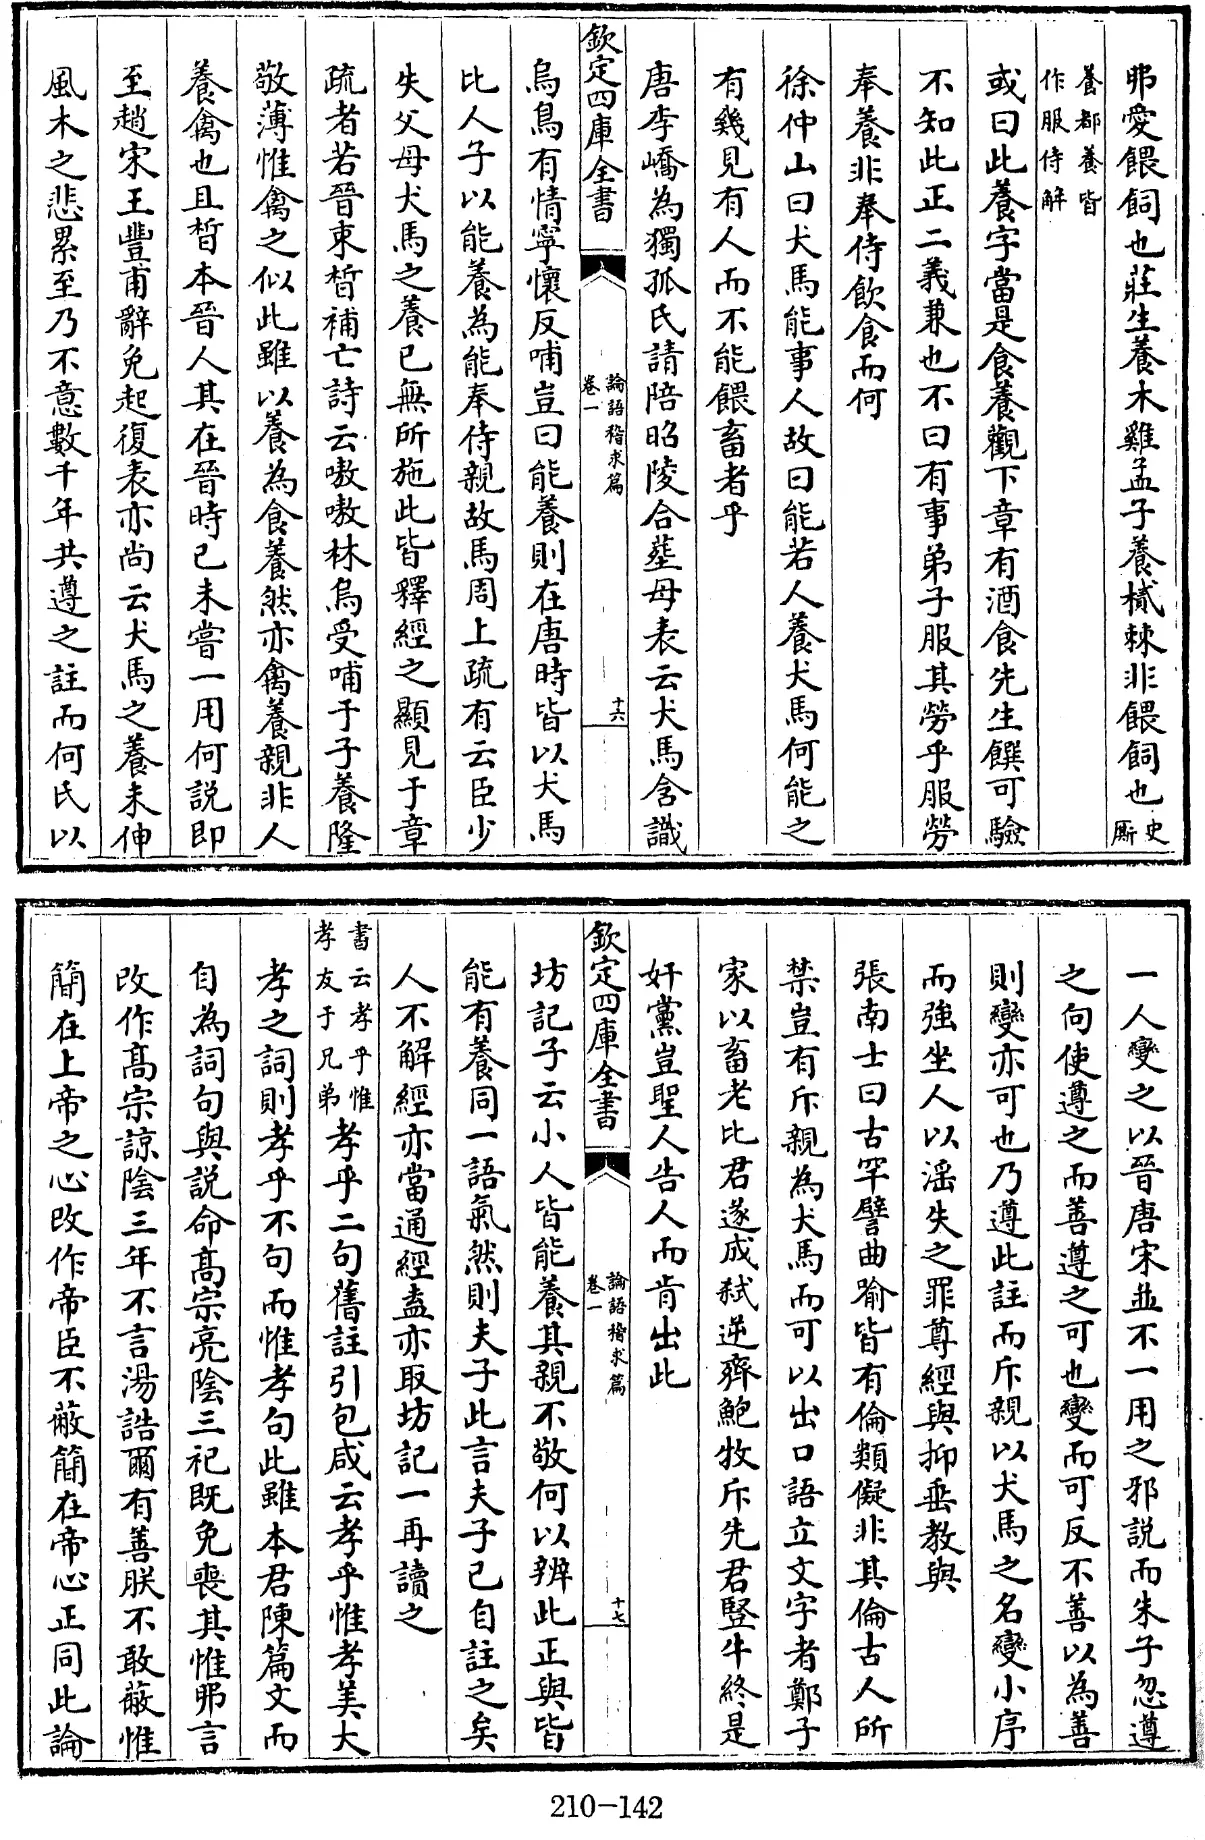 弗愛餵飼也莊生養木雞孟子養樲棘非餵飼也史厮
養都養皆
作服侍解
或曰此養字當是食養觀下章有酒食先生饌可驗
不知此正二義兼也不曰有事弟子服其勞乎服勞
奉養非奉侍飲食而何
徐仲山曰犬馬能事人故曰能若人養犬馬何能之
有幾見有人而不能餵畜者乎
唐李嶠為獨孤氏請陪昭陵合塟母表云犬馬含識
欽定四庫全書
論語稽求篇
卷一
十六
烏鳥有情寧懷反哺豈曰能養則在唐時皆以犬馬
比人子以能養為能奉侍親故馬周上疏有云臣少
失父母犬馬之養已無所施此皆釋經之顯見于章
疏者若晉束晳補亡詩云嗷嗷林烏受哺于子養隆
敬薄惟禽之似此雖以養為食養然亦禽養親非人
養禽也且晳本晉人其在晉時已未嘗一用何説即
至趙宋王豐甫辭免起復表亦尚云犬馬之養未伸
風木之悲累至乃不意數千年共遵之註而何氏以
一人變之以晉唐宋並不一用之邪說而朱子忽遵
之向使遵之而善遵之可也變而可反不善以為善
則變亦可也乃遵此註而斥親以犬馬之名變小序
而強坐人以淫失之罪尊經與抑垂教與
張南士曰古罕譬曲喻皆有倫類儗非其倫古人所
禁豈有斥親為犬馬而可以出口語立文字者鄭子
家以畜老比君遂成弒逆齊鮑牧斥先君豎牛終是
奸黨豈聖人告人而肯出此
欽定四庫全書
論語稽求篇
卷一
十七
坊記子云小人皆能養其親不敬何以辨此正與皆
能有養同一語氣然則夫子此言夫子已自註之矣
人不解經亦當通經盍亦取坊記一再讀之
書云孝乎惟
孝友于兄弟
孝乎二句舊註引包咸云孝乎惟孝美大
孝之詞則孝乎不句而惟孝句此雖本君陳篇文而
自為詞句與説命髙宗亮陰三祀既免喪其惟弗言
改作髙宗諒陰三年不言湯誥爾有善朕不敢蔽惟
簡在上帝之心改作帝臣不蔽簡在帝心正同此論
210-142